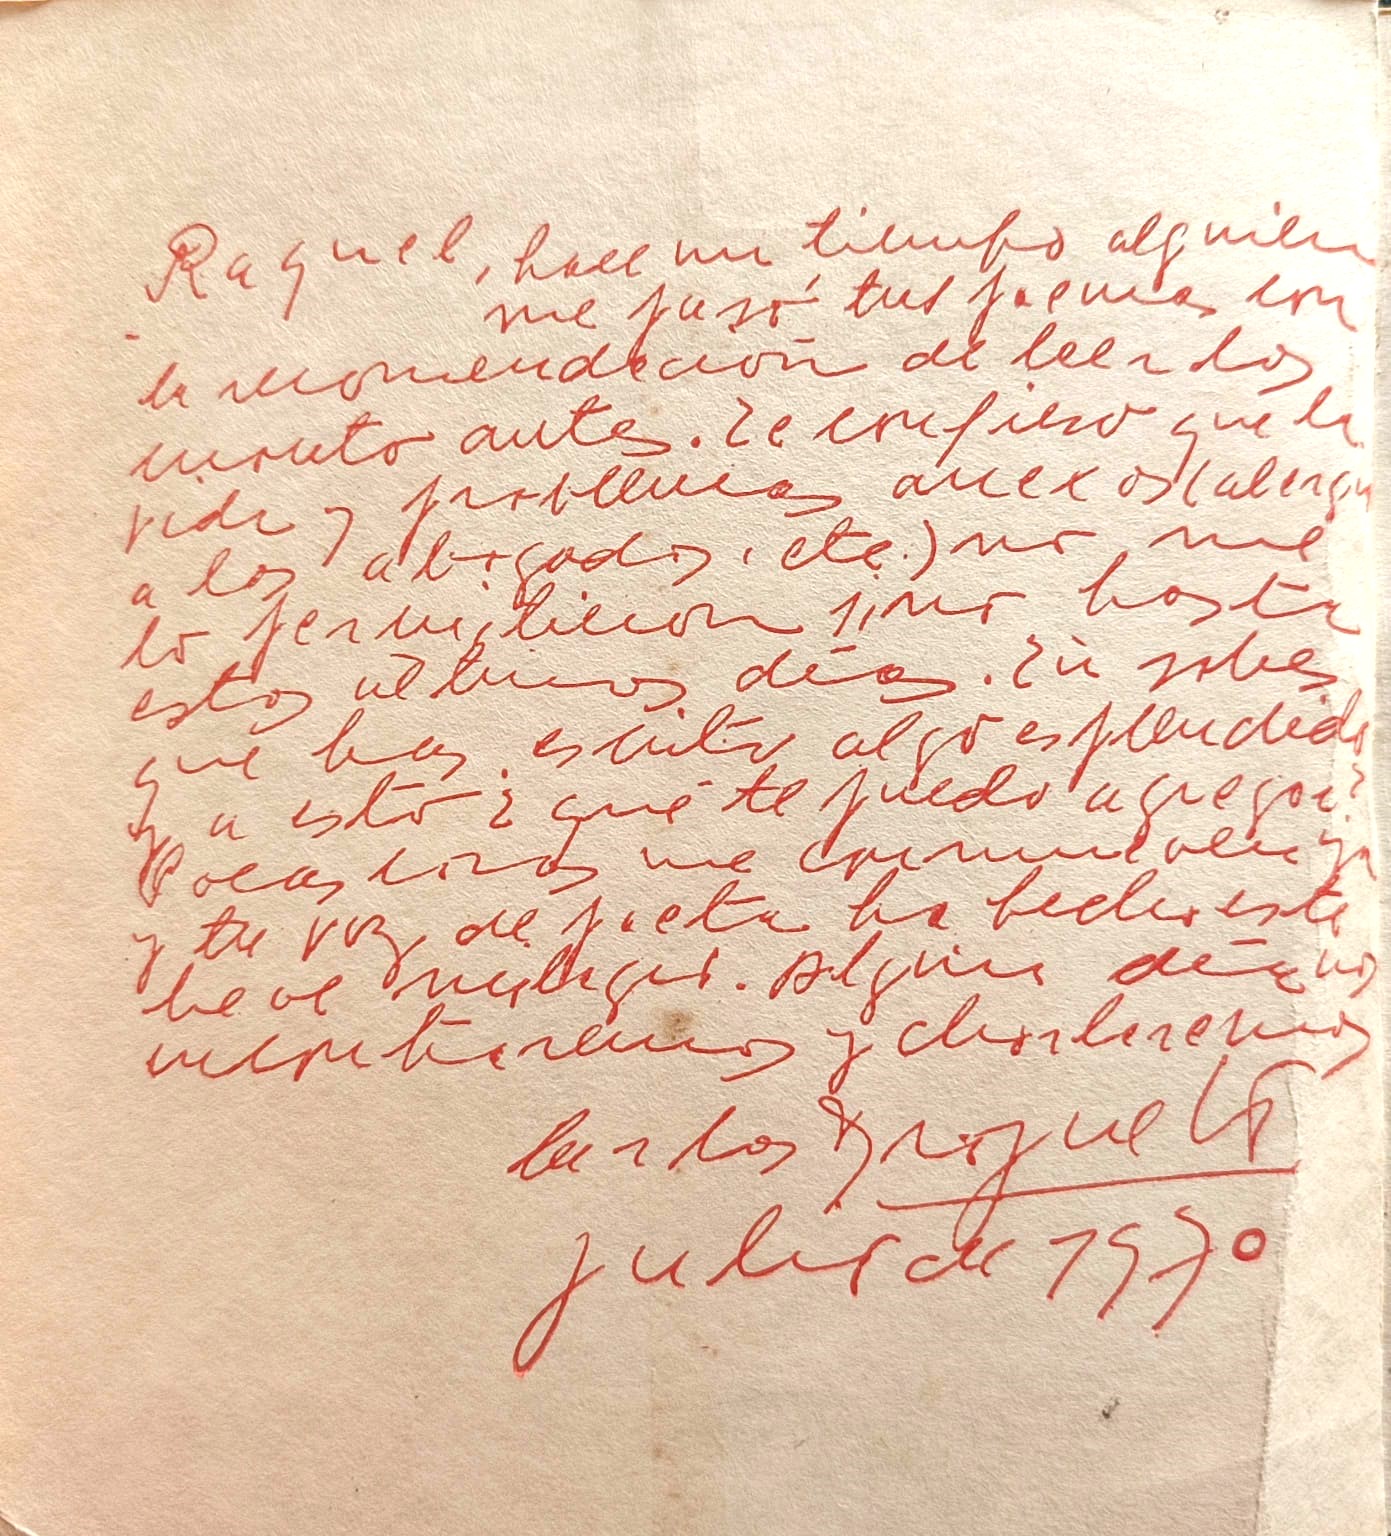 Raquel, hace un tiempo alguien
me pasó tus poemas con
la recomendación de leerlos
cuanto antes. Te confieso que la
vida y problemas anexos (alergia
a los abogados, etc.) no me
lo permitieron sino hasta
estos últimos días. Tú sabes
que has escrito algo espléndido
y a esto ¿qué te puedo agregar?
Pocas cosas me conmueven ya
y tu voz de poeta ha hecho este
leve milagro. Algún día nos
encontraremos y charlaremos
Carlos
julio de 1970